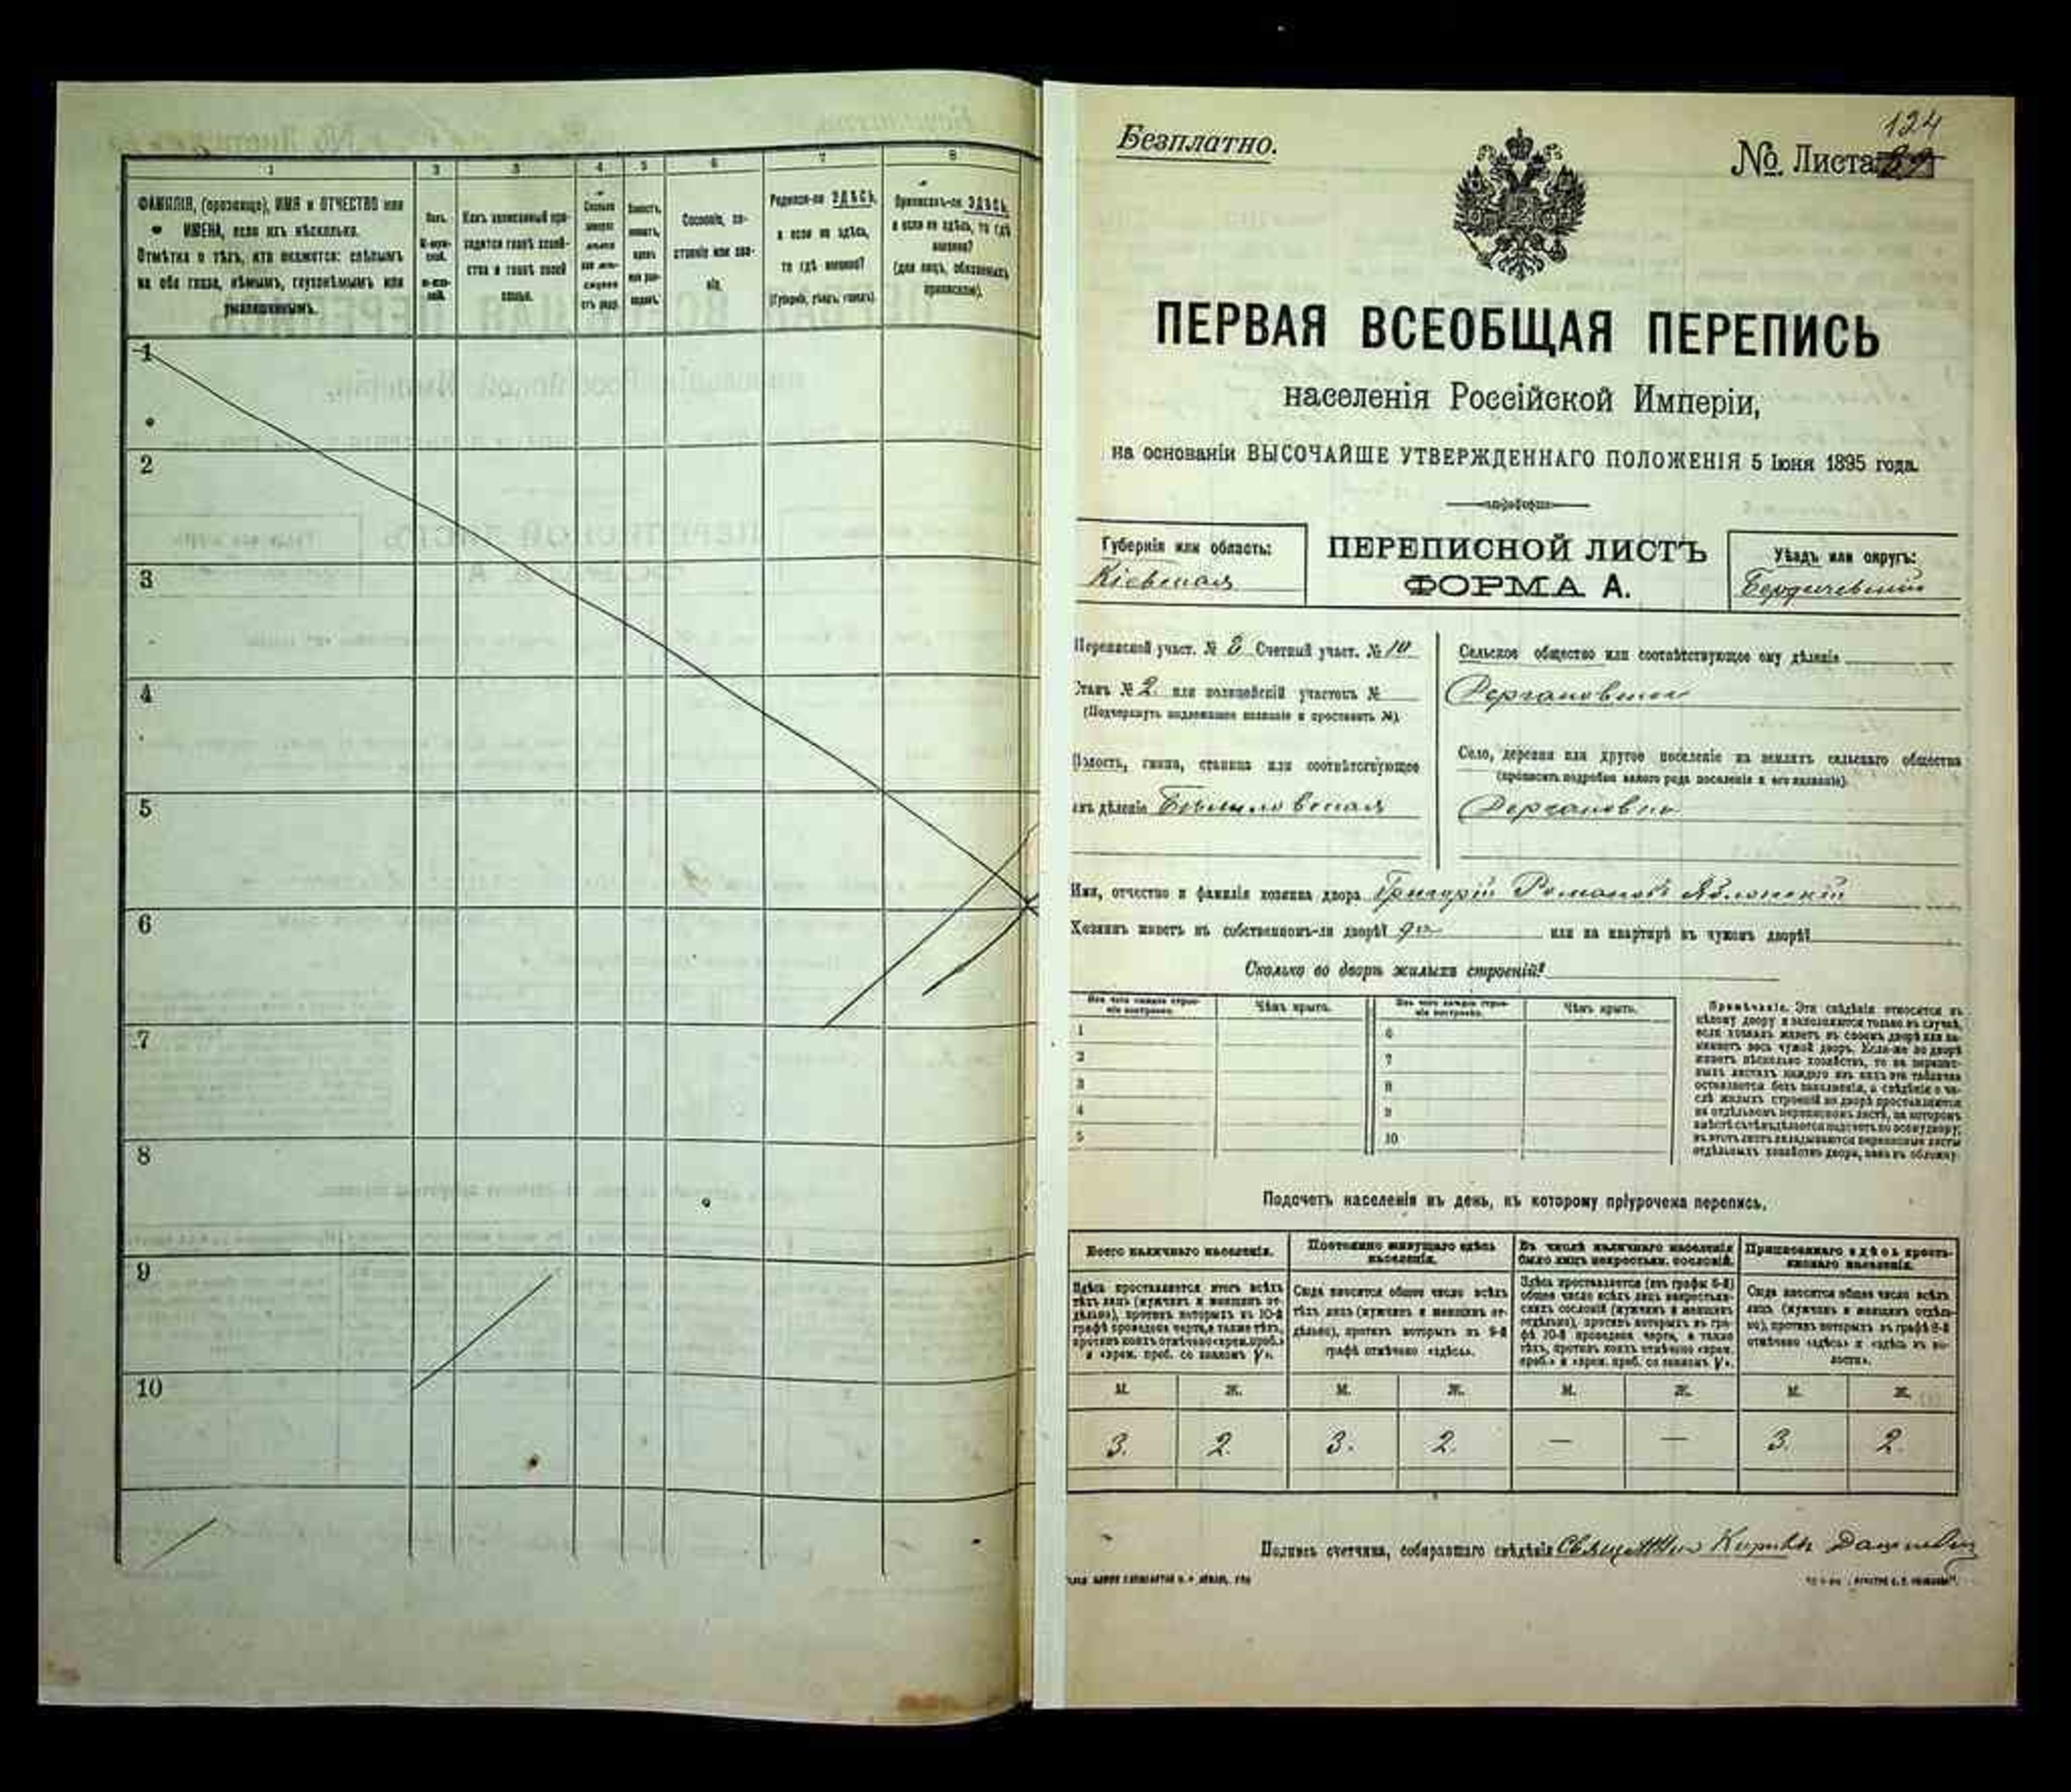 1 2 3 4 5 6 7 8
ФАМИЛІЯ, (прозвище), ИМЯ и ОТЧЕСТВО или
ИМЕНА, если ихъ нѣсколько.
Отмѣтка о тѣхъ, кто окажется: слѣпымъ
на оба глаза, нѣмымъ, глухонѣмымъ или
умалишеннымъ.
Полъ.
М-муж-
ской.
Ж-жен-
скій.
Какъ записанный при-
ходится главѣ хозяй-
ства и главѣ своей
семьи.
Сколько
Сословіе, со-
стояніе или зва-
ніе.
Родился-ли ЗДѢСЬ,
а если не здѣсь,
то гдѣ именно?
(Губернія, уѣздъ, городъ).
Приписанъ-ли ЗДѢСЬ,
а если не здѣсь, то гдѣ
именно?
(для лицъ, обязанныхъ
припискою).
1
2
3
4
5
6
7
8
9
10
124
Безплатно.
№ Листа
ПЕРВАЯ ВСЕОБЩАЯ ПЕРЕПИСЬ
населенія Россійской Имперіи,
на основаніи ВЫСОЧАЙШЕ УТВЕРЖДЕННАГО ПОЛОЖЕНІЯ 5 Іюня 1895 года.
Губернія или область:
Кіевская
ПЕРЕПИСНОЙ ЛИСТЪ
ФОРМА А.
Уѣздъ или округъ:
Бердичевскій
Переписной участ. № 2 Счетный участ. № 10
Станъ № 2 или полицейскій участокъ №
(Подчеркнуть надлежащее названіе и проставить №).
Волость, гмина, станица или соотвѣтствующее
имъ дѣленіе
Сельское общество или соотвѣтствующее ему дѣленіе
Село, деревня или другое поселеніе на земляхъ сельскаго общества
(прописать подробно какого рода поселеніе и его названіе).
Имя, отчество и фамилія хозяина двора Григорій Романовъ Яблонскій
Хозяинъ живетъ въ собственномъ-ли дворѣ? да или на квартирѣ въ чужомъ дворѣ?
Сколько во дворѣ жилыхъ строеній?
Изъ чего каждое строе-
ніе построено.
Чѣмъ крыто.
Изъ чего каждое строе-
ніе построено.
Чѣмъ крыто.
1 6
2 7
3 8
4 9
5 10
Примѣчаніе. Эти свѣдѣнія относятся къ
цѣлому двору и заполняются только въ случаѣ,
если хозяинъ живетъ въ своемъ дворѣ или за-
нимаетъ весь чужой дворъ. Если-же во дворѣ
живетъ нѣсколько хозяйствъ, то на перепис-
ныхъ листахъ каждаго изъ нихъ эта табличка
оставляется безъ заполненія, а свѣдѣнія о чи-
слѣ жилыхъ строеній во дворѣ проставляются
на отдѣльномъ переписномъ листѣ, на которомъ
вмѣстѣ съ тѣмъ дѣлается подсчетъ по всему двору;
въ этотъ листъ вкладываются переписные листы
отдѣльныхъ хозяйствъ двора, какъ въ обложку.
Подсчетъ населенія въ день, къ которому пріурочена перепись.
Всего наличнаго населенія.
Постоянно живущаго здѣсь
населенія.
Въ числѣ наличнаго населенія
было лицъ некрестьян. сословій.
Приписаннаго здѣсь кресть-
янскаго населенія.
Здѣсь проставляется итогъ всѣхъ
тѣхъ лицъ (мужчинъ и женщинъ от-
дѣльно), противъ которыхъ въ 10-й
графѣ проведена черта, а также тѣхъ,
противъ коихъ отмѣчено «врем. преб.»
и «врем. преб. со знакомъ V».
Сюда вносится общее число всѣхъ
тѣхъ лицъ (мужчинъ и женщинъ от-
дѣльно), противъ которыхъ въ 9-й
графѣ отмѣчено «здѣсь».
Здѣсь проставляется (изъ графы 6-й)
общее число всѣхъ лицъ некрестьян-
скихъ сословій (мужчинъ и женщинъ
отдѣльно), противъ которыхъ въ гра-
фѣ 10-й проведена черта, а также
тѣхъ, противъ коихъ отмѣчено «врем.
преб.» и «врем. преб. со знакомъ V».
Сюда вносится общее число всѣхъ
лицъ (мужчинъ и женщинъ отдѣль-
но), противъ которыхъ въ графѣ 8-й
отмѣчено «здѣсь» и «здѣсь въ во-
лости».
М. Ж. М. Ж. М. Ж. М. Ж.
3. 2. 3. 2. — — 3. 2.
Подпись счетчика, собиравшаго свѣдѣнія